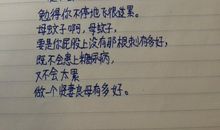 勉得你不停地飞很这累。
母蚊子啊，母蚊子，
要是你屁股上没有那根刺有多好，
既不会患上糖尿病，
又不会太累
做一个贤妻良母有多好。